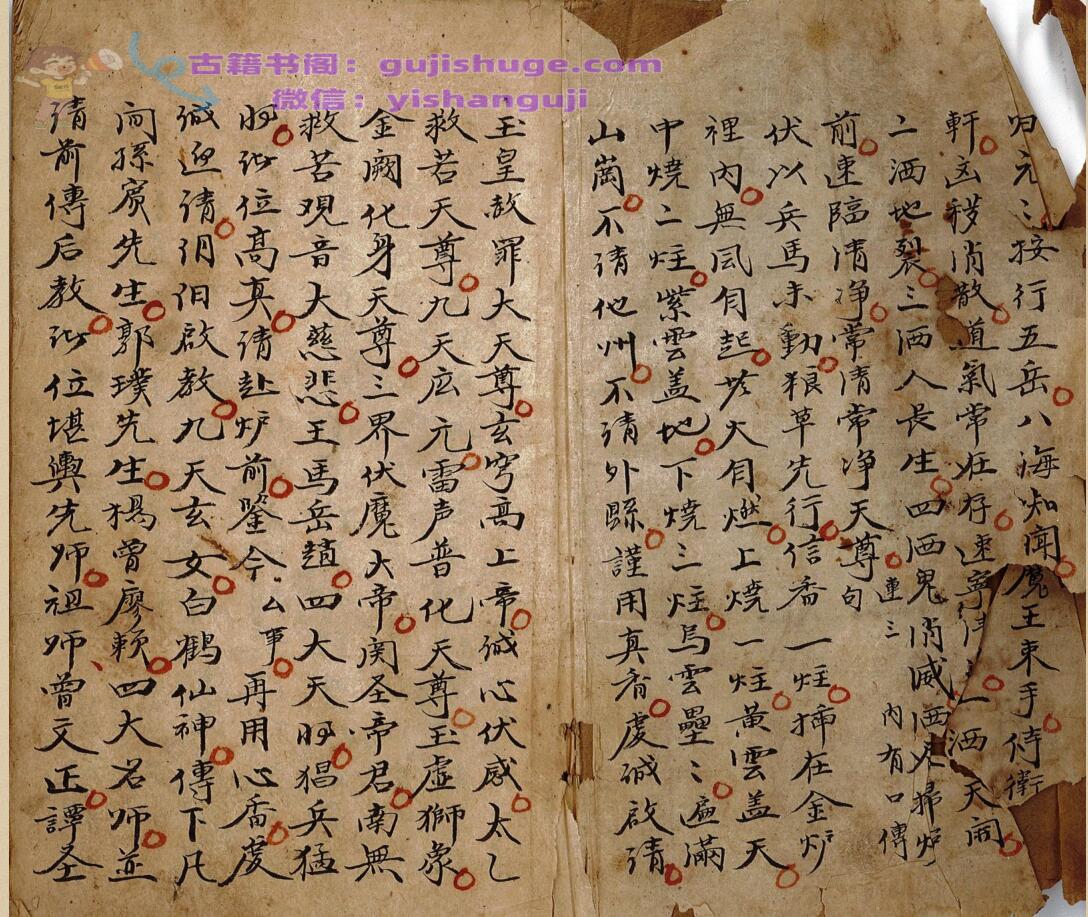 古籍书阁：gujishuge.com
微信：yishanguji
归元：按行五岳八海知闻魔王束手侍衛
軒凶穢消散道氣常在存速 二洒天開
二洒地裂三洒人長生四洒鬼消滅洒 掃炉
前速臨清净常清常净天尊句連三内有口傳
伏以兵馬未動粮草先行信香一炷插在金炉
裡内無風自起 大自燃上燒一炷黄雲盖天
中燒二炷紫雲盖地下燒三炷烏雲壘：遍滿
山崗不请他州不请外縣謹用真香虔誠啟请
玉皇赦罪大天尊玄穹高上帝誠心伏感太乙
救若天尊九天应元雷声普化天尊玉虚獅象
金阙化身天尊三界伏魔大帝関圣帝君南無
救苦观音大慈悲王馬岳趙四大天将猖兵猛
将 位高真请赴炉前鉴今么事再用心香虔
誠迎请 旧啟教九天玄女白鶴仙神傳下凡
间孫宾先生郭璞先生楊曾廖賴四大名师並
请前傳后教 位堪輿先师祖师曾文正譚圣